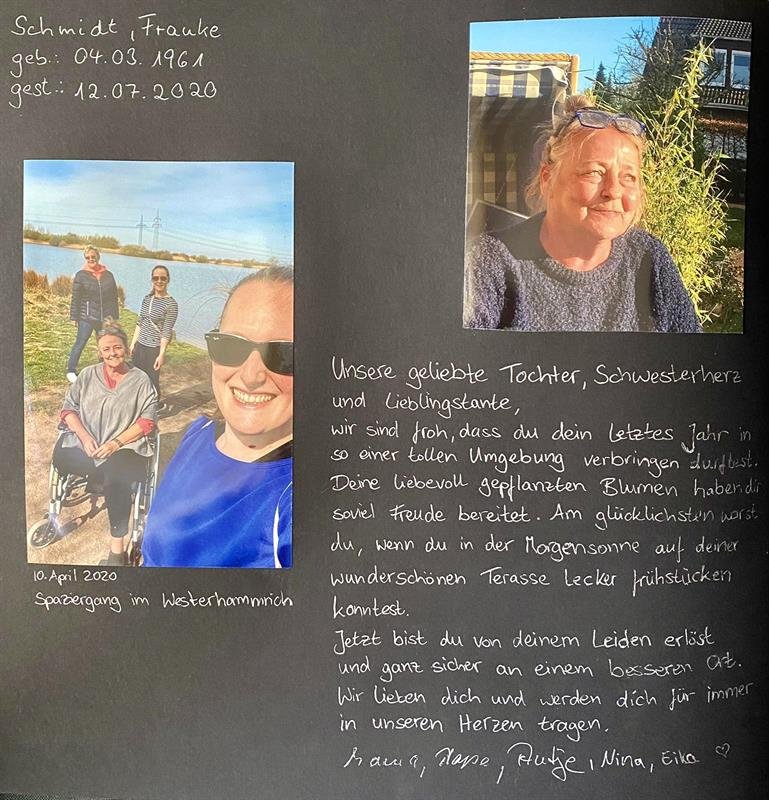 Schmidt, Frauke
geb.: 04.03.1961
gest.: 12.07.2020
10. April 2020
Spaziergang im Westerhammrich
Unsere geliebte Tochter, Schwesterherz
und Lieblingstante,
wir sind froh, dass du dein letztes Jahr in
so einer tollen Umgebung verbringen durftest.
Deine liebevoll gepflanzten Blumen haben dir
soviel Freude bereitet. Am glücklichsten warst
du, wenn du in der Morgensonne auf deiner
wunderschönen Terasse lecker frühstücken
konntest.
Jetzt bist du von deinem Leiden erlöst
und ganz sicher an einem besseren Ort.
Wir lieben dich und werden dich für immer
in unseren Herzen tragen.
Mama, Papa, Antje, Nina, Eika ♡